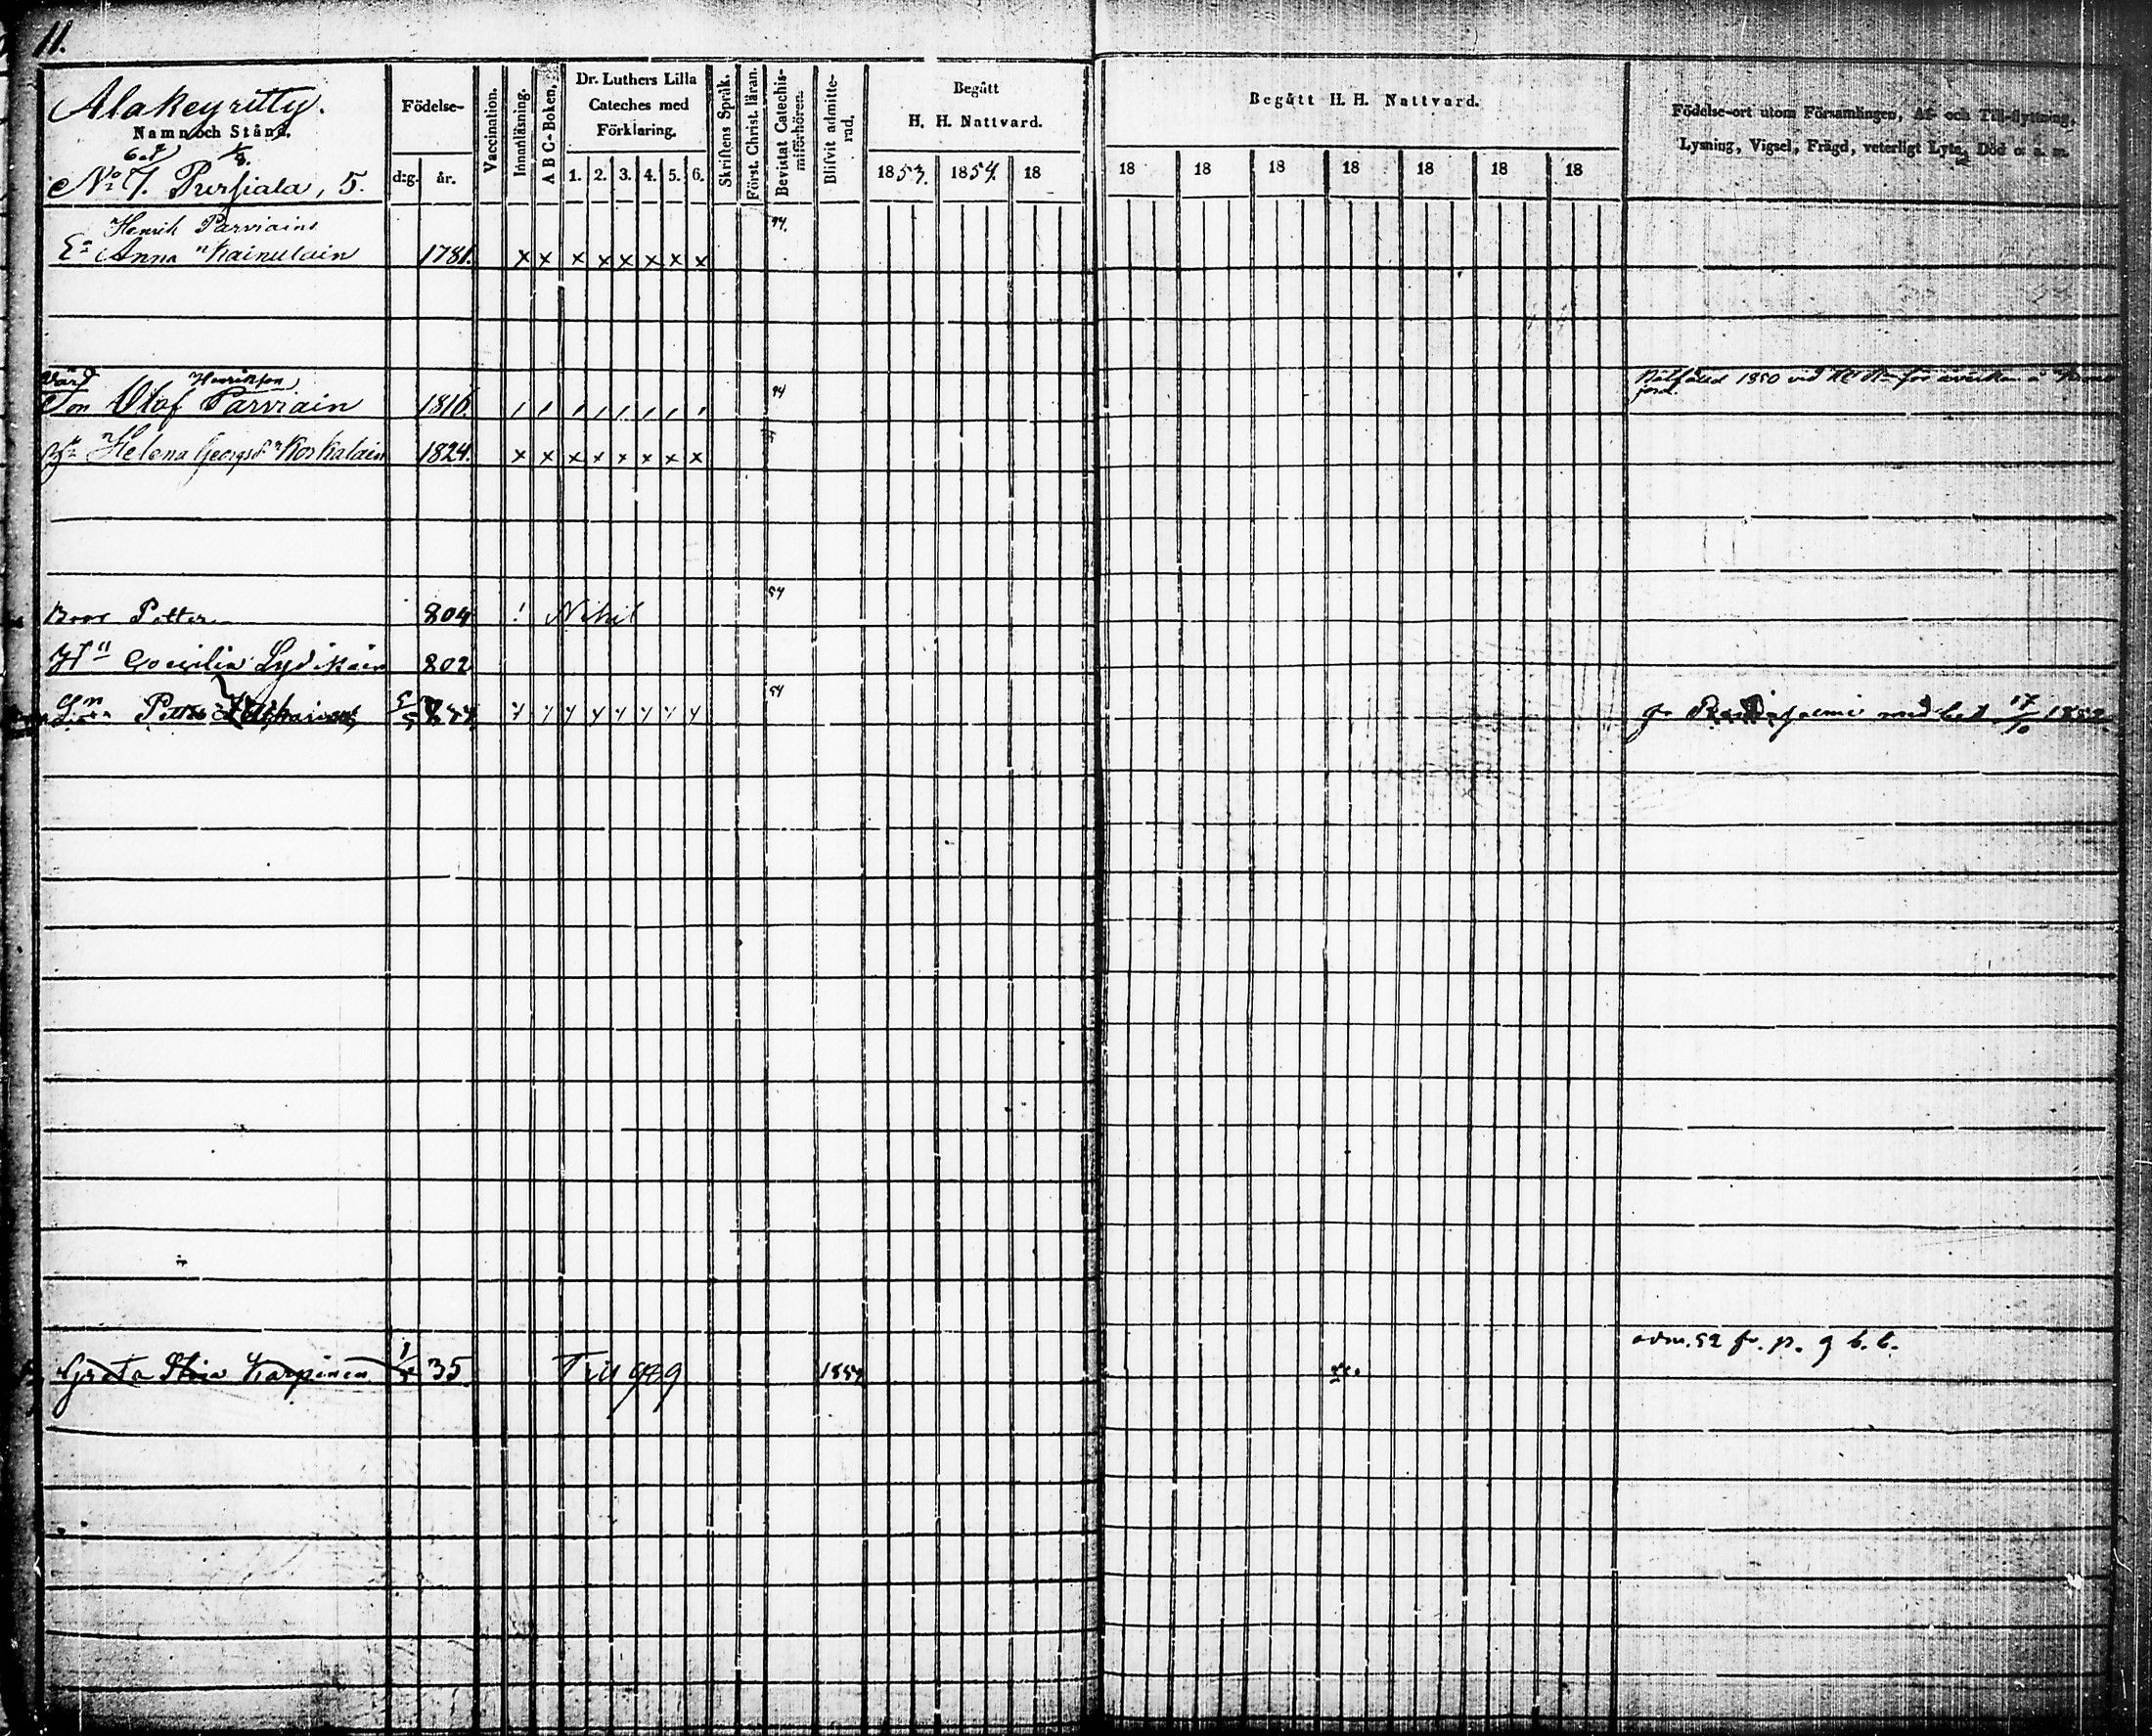 11.
Alakeyritty.
Namn och Stånd.
No 7. Pursiala, 5.
Födelse-
d:g. år.
Vaccination.
Innanläsning.
A B C-Boken,
Dr. Luthers Lilla
Cateches med
Förklaring.
1. 2. 3. 4. 5. 6.
Skriftens Språk.
Först. Christ. läran.
Bevistat Catechis-
miförhören.
Blifvit admitte-
rad.
Begått
H. H. Nattvard.
1853. 1854. 18
Begått H. H. Nattvard.
18 18 18 18 18 18 18
Födelse-ort utom Församlingen, Af- och Till-flyttning,
Lysning, Vigsel, Frägd, veterligt Lyte, Död o. s. m.
Henrik Parviains
Ea Anna Kainulain 1781. x x x x x x x x
Henrikson
Son Olof Parviain 1816.
Helena Georgsdr Koskalain 1824. x x x x x x x x
54
Petter 804 Nihil
Hu Coecilia Lydikäin 802
54
Petter
med bet 17/10
adm. 52 fr. p. g b. b.
Greta Stina Karpinen 35 1854